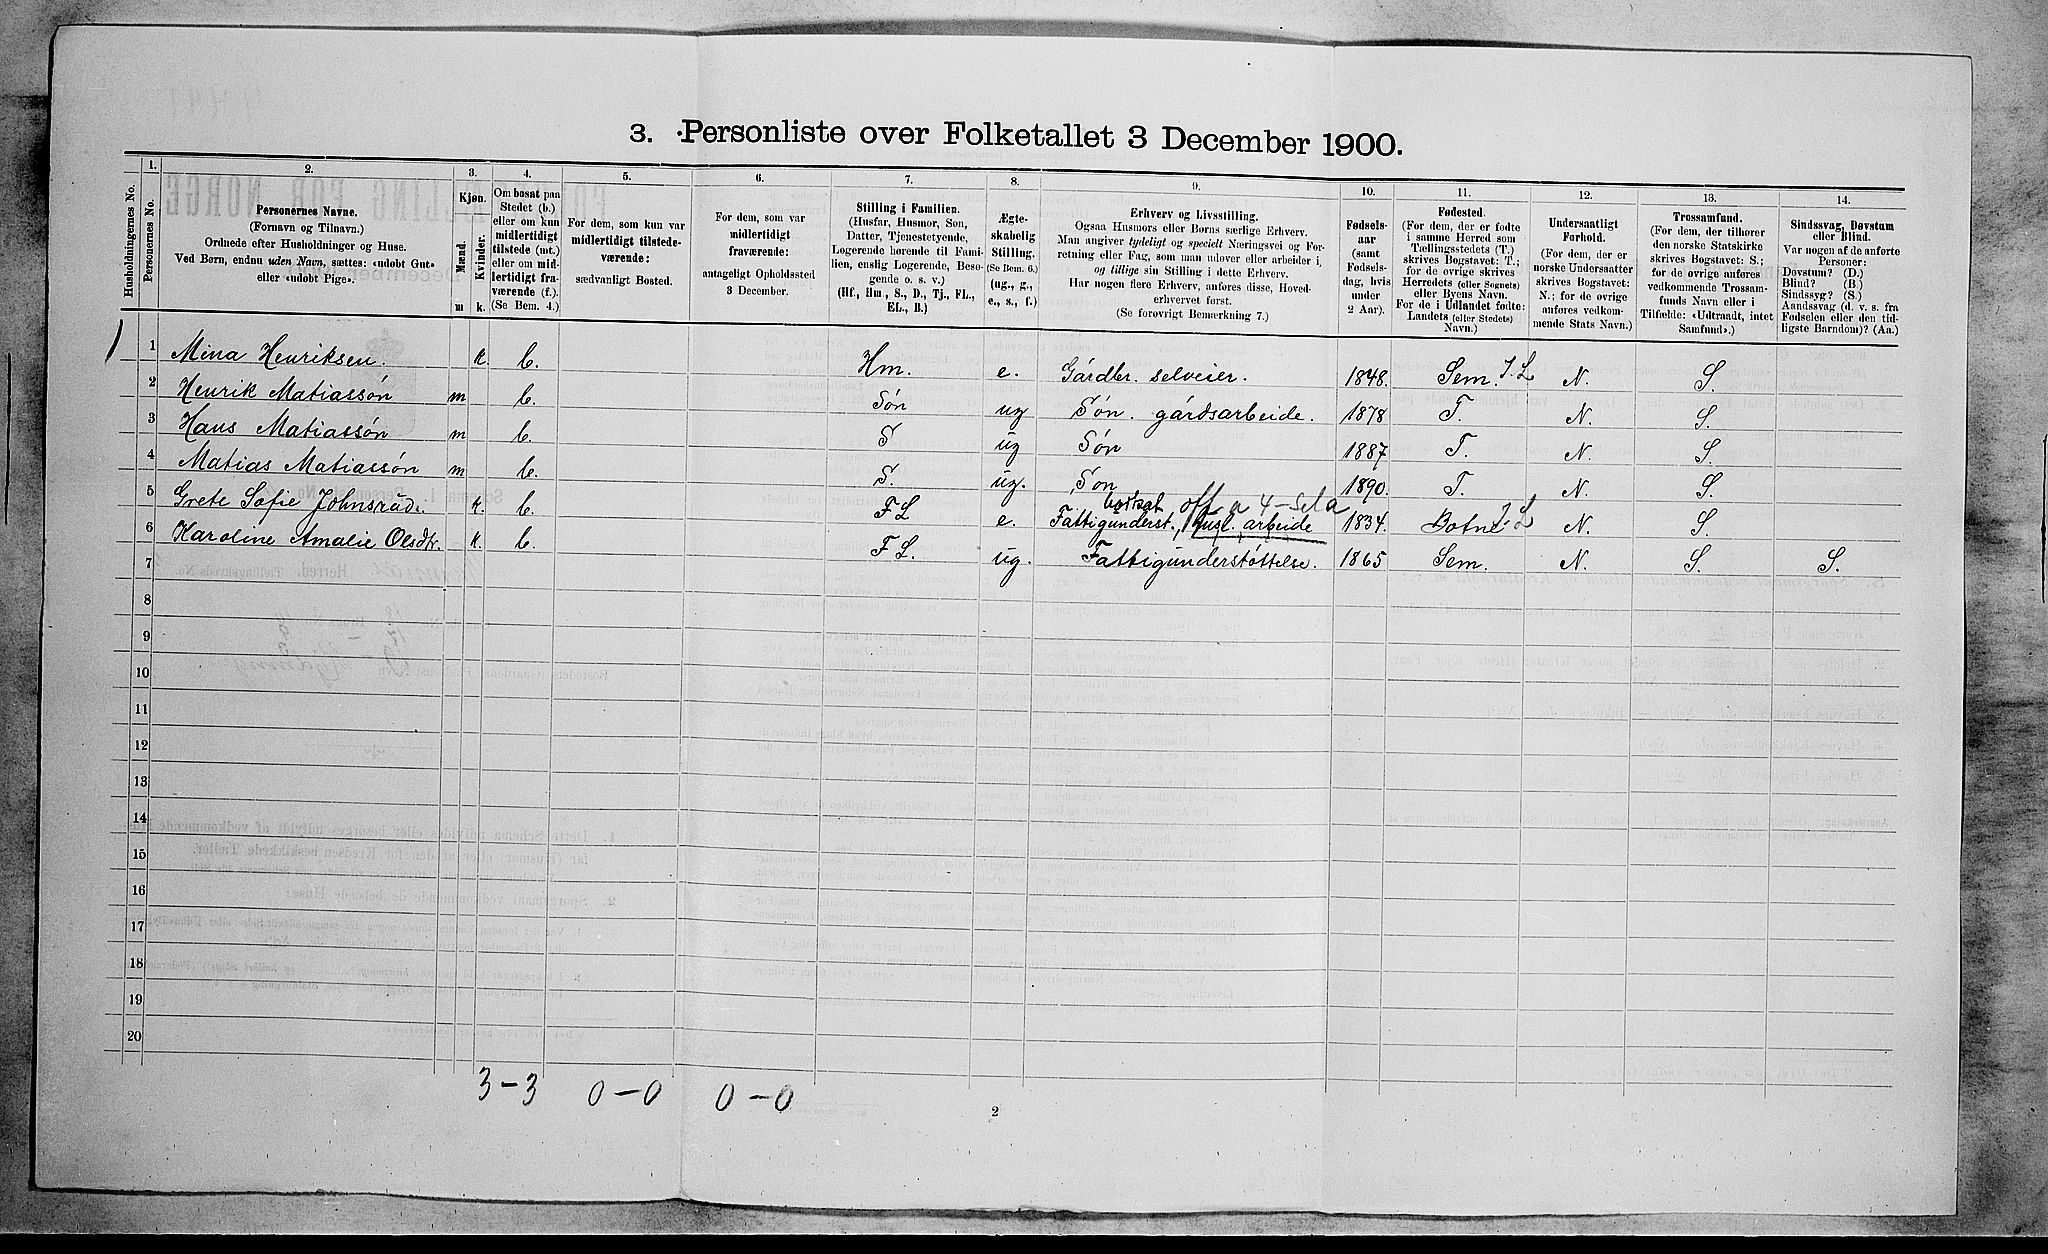 3. Personliste over Folketallet 3 December 1900.
1. 2. 3. 4. 5. 6. 7. 8. 9. 10. 11. 12. 13. 14.
Husholdningernes No.
Personernes No.
Personernes Navne.
(Fornavn og Tilnavn.)
Ordnede efter Husholdninger og Huse.
Ved Børn, endnu uden Navn, sættes: «udobt Gut»
eller «udobt Pige».
Kjøn.
Mænd.
Kvinder.
m k.
Om bosat paa
Stedet (b.)
eller om kun
midlertidigt
tilstede (mt.)
eller om mid-
lertidigt fra-
værende (f.).
(Se Bem. 4.)
For dem, som kun var
midlertidigt tilstede-
værende:
sædvanligt Bosted.
For dem, som var
midlertidigt
fraværende:
antageligt Opholdssted
3 December.
Stilling i Familien.
(Husfar, Husmor, Søn,
Datter, Tjenestetyende,
Logerende hørende til Fami-
lien, enslig Logerende, Besø-
gende o. s. v.)
(Hf., Hm., S., D., Tj., FL.,
EL., B.)
Ægte-
skabelig
Stilling.
(Se Bem. 6.)
(ug., g.,
e., s., f.)
Erhverv og Livsstilling.
Ogsaa Husmors eller Børns særlige Erhverv.
Man angiver tydeligt og specielt Næringsvei og For-
retning eller Fag, som man udover eller arbeider i,
og tillige sin Stilling i dette Erhverv.
Har nogen flere Erhverv, anføres disse, Hoved-
erhvervet først.
(Se forøvrigt Bemærkning 7.)
Fødsels-
aar
(samt
Fødsels-
dag, hvis
under
2 Aar).
Fødested.
(For dem, der er fødte
i samme Herred som
Tællingsstedets (T.)
skrives Bogstavet: T.;
for de øvrige skrives
Herredets (eller Sognets)
eller Byens Navn.
For de i Udlandet fødte:
Landets (eller Stedets)
Navn.)
Undersaatligt
Forhold.
(For dem, der er
norske Undersaatter
skrives Bogstavet:
N.; for de øvrige
anføres vedkom-
mende Stats Navn.)
Trossamfund.
(For dem, der tilhører
den norske Statskirke
skrives Bogstavet: S.;
for de øvrige anføres
vedkommende Trossam-
funds Navn eller i
Tilfælde: «Udtraadt, intet
Samfund».)
Sindssvag, Døvstum
eller Blind.
Var nogen af de anførte
Personer:
Døvstum? (D.)
Blind? (B.)
Sindssyg? (S.)
Aandssvag (d. v. s. fra
Fødselen eller den tid-
ligste Barndom)? (Aa.)
1 1 Mina Henriksen. k. b. Hm. e. Gårdbr. selveier. 1848. Sem. J. L N. S.
2 Henrik Matiassøn m b. Søn ug Søn. gårdsarbeide. 1878 T. N. S.
3 Hans Matiassøn m b. S ug Søn 1887 T. N. S.
4 Matias Matiassøn m b. S. ug. Søn 1890. T. N. S.
bortsat
5 Grete Sofie Johnsrud. k. b. FL e. Fattigunderst., husl. arbeide 1834. Botne. J. L N. S.
6 Karoline Amalie Olsdtr. k. b. F L. ug. Fattigunderstøttelse. 1865 Sem. N. S. S.
7
8
9
10
11
12
13
14
15
16
17
18
19
20
3-3 0-0 0-0
2